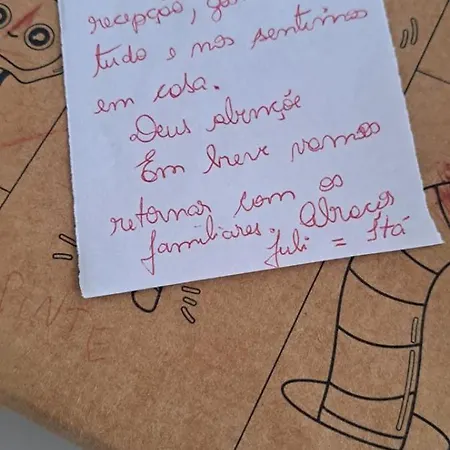 recepção, gos
tudo e nos sentimos
em casa.
Deus abençõe
Em breve vamos
retornar com os
familiares. Abraços
Juli = Itá
NTE